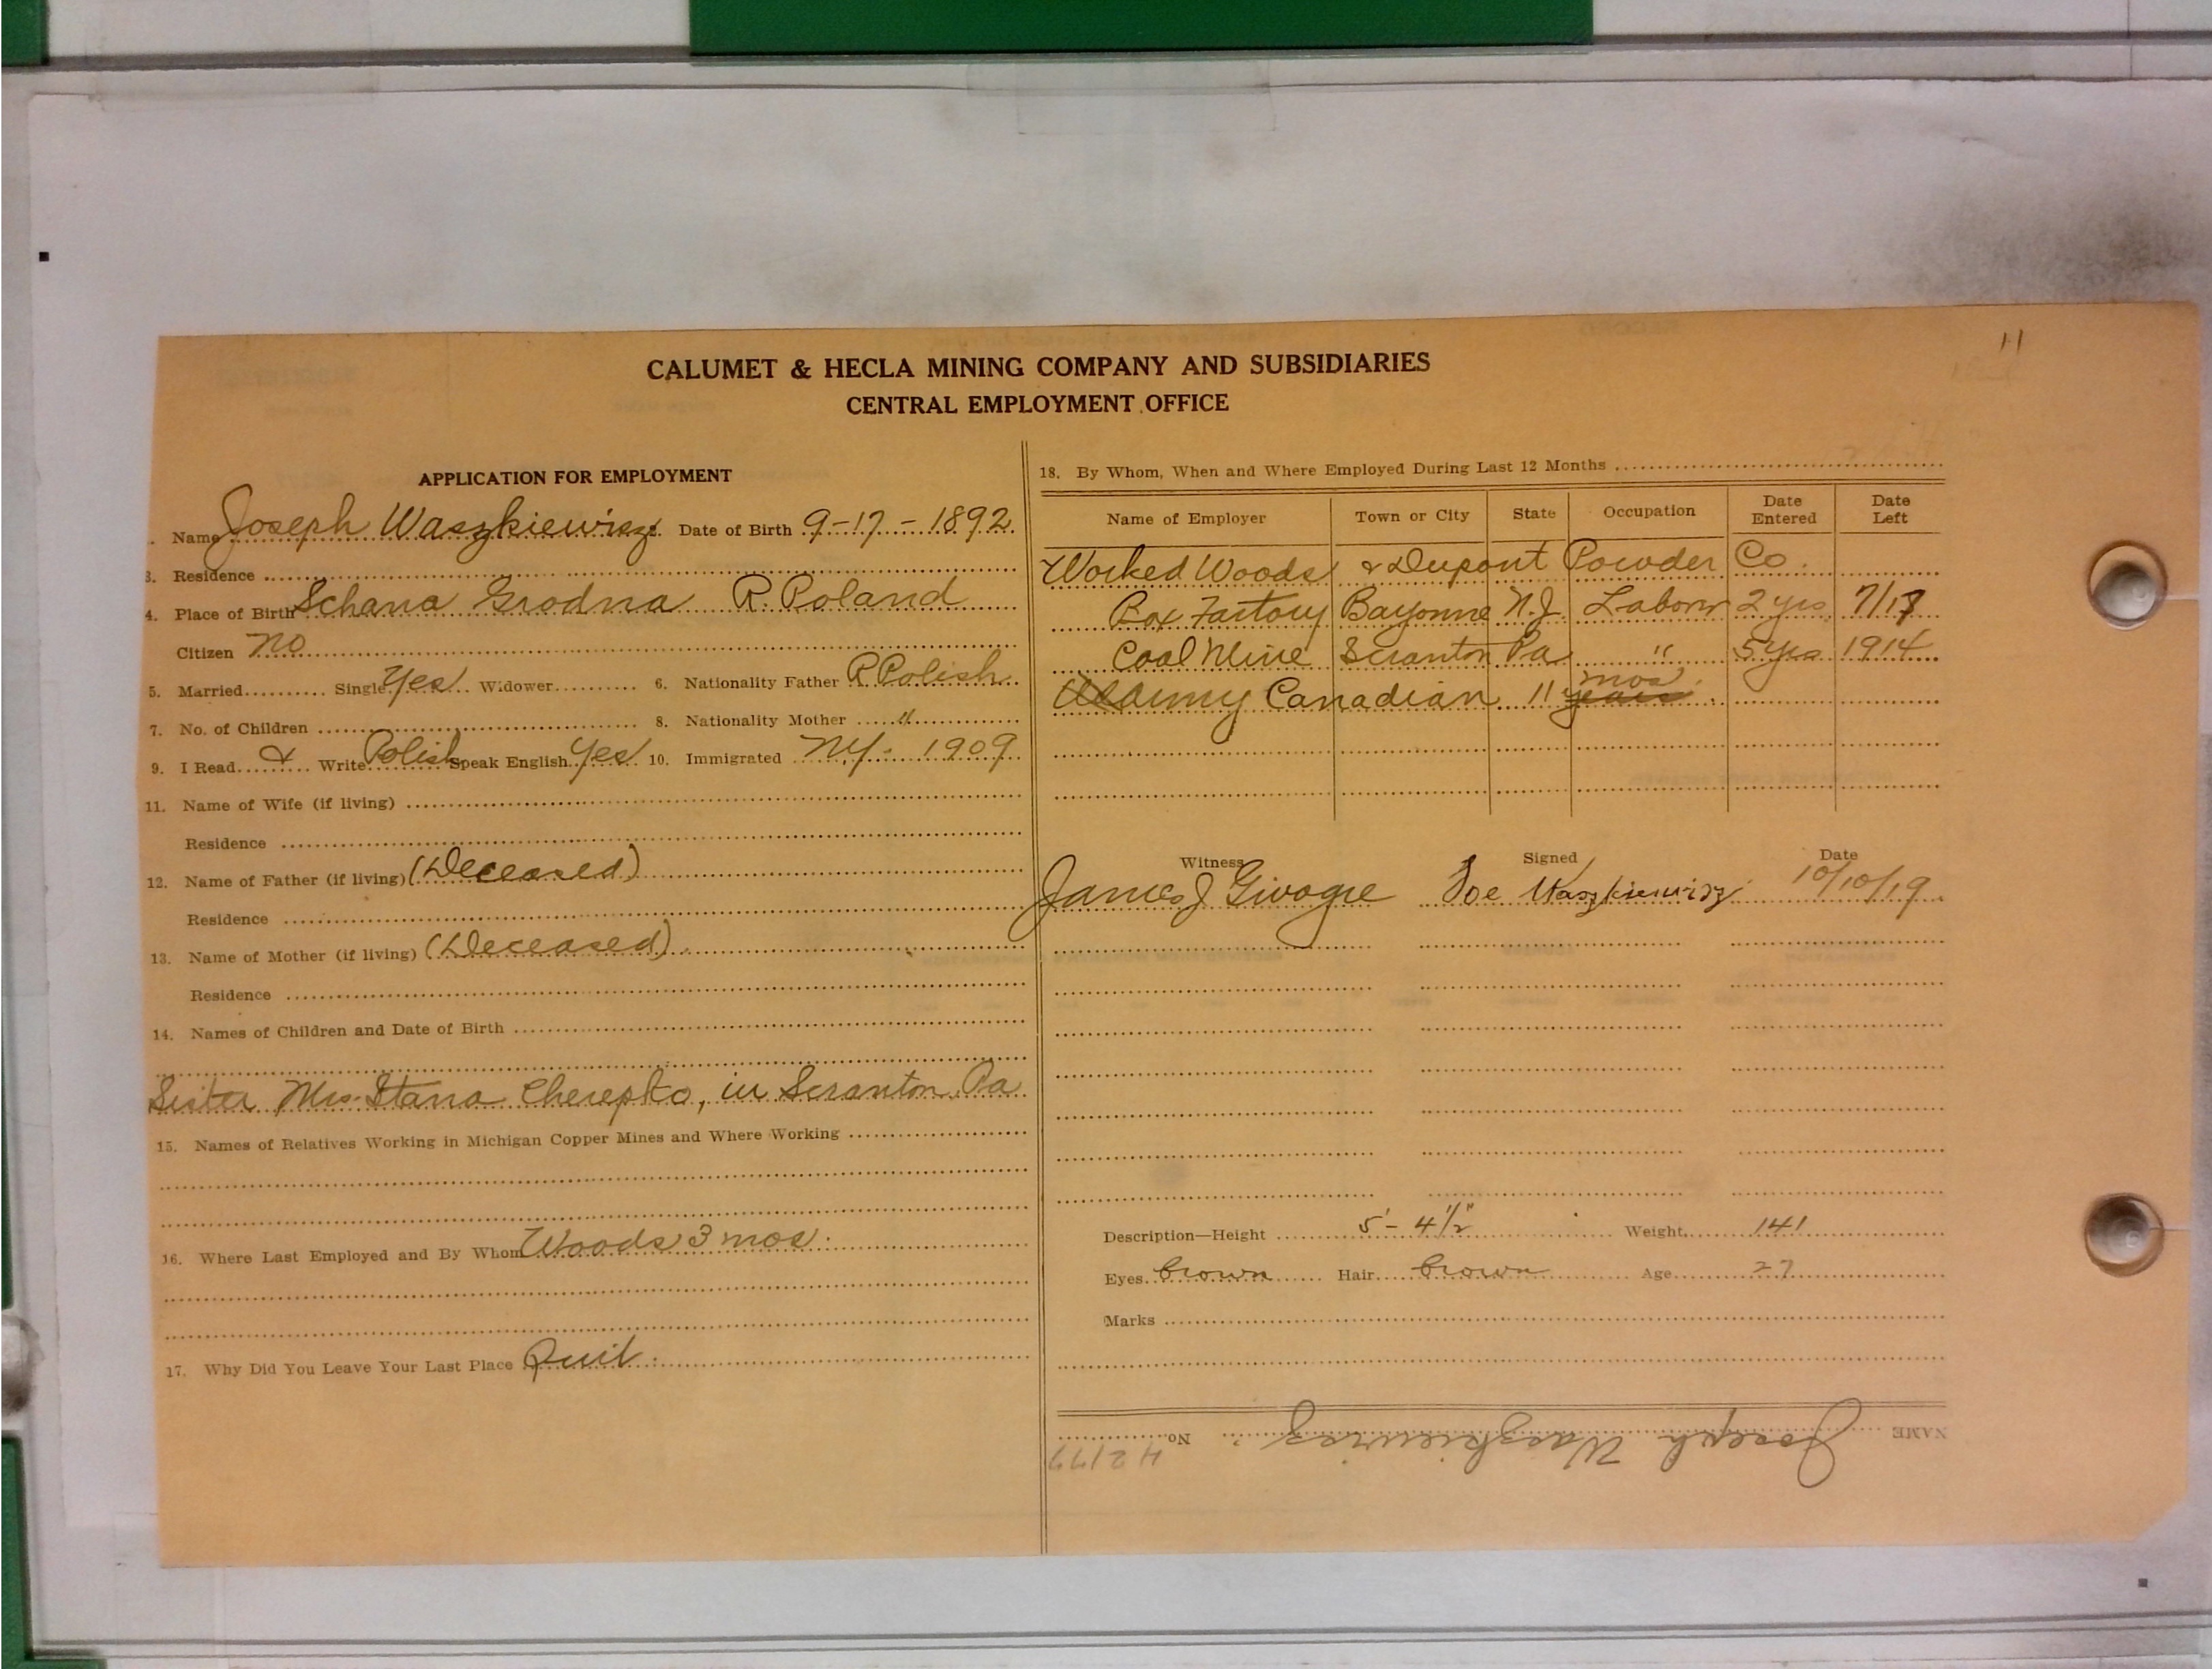 11
CALUMET & HECLA MINING COMPANY AND SUBSIDIARIES
CENTRAL EMPLOYMENT OFFICE
APPLICATION FOR EMPLOYMENT
Name Joseph Waszkiewisz. Date of Birth 9-17-1892
3. Residence
4. Place of Birth Schana Grodna R. Poland
Citizen no
5. Married Single Yes Widower 6. Nationality Father R Polish
7. No. of Children 8. Nationality Mother "
9. I Read & Write Polish Speak English Yes 10. Immigrated N.Y. 1909
11. Name of Wife (if living)
Residence
12. Name of Father (if living) (Deceased)
Residence
13. Name of Mother (if living) (Deceased)
Residence
14. Names of Children and Date of Birth
Sister Mrs. Stana Cherepko, in Scranton Pa
15. Names of Relatives Working in Michigan Copper Mines and Where Working
16. Where Last Employed and By Whom Woods 3 mos.
17. Why Did You Leave Your Last Place Quit.
18. By Whom, When and Where Employed During Last 12 Months
Name of Employer Town or City State Occupation Date Entered Date Left
Worked Woods & Dupont Powder Co.
Box Factory Bayonne N.J. Laborer 2 yrs 7/17
Coal Mine Scranton Pa " 5 yrs 1914
Army Canadian 11 years mos.
Witness Signed Date
James J Givogre Joe Waszkiewisz 10/10/19
Description—Height 5'-4½" Weight 141
Eyes brown Hair brown Age 27
Marks
NAME Joseph Waszkiewisz. No. 42177